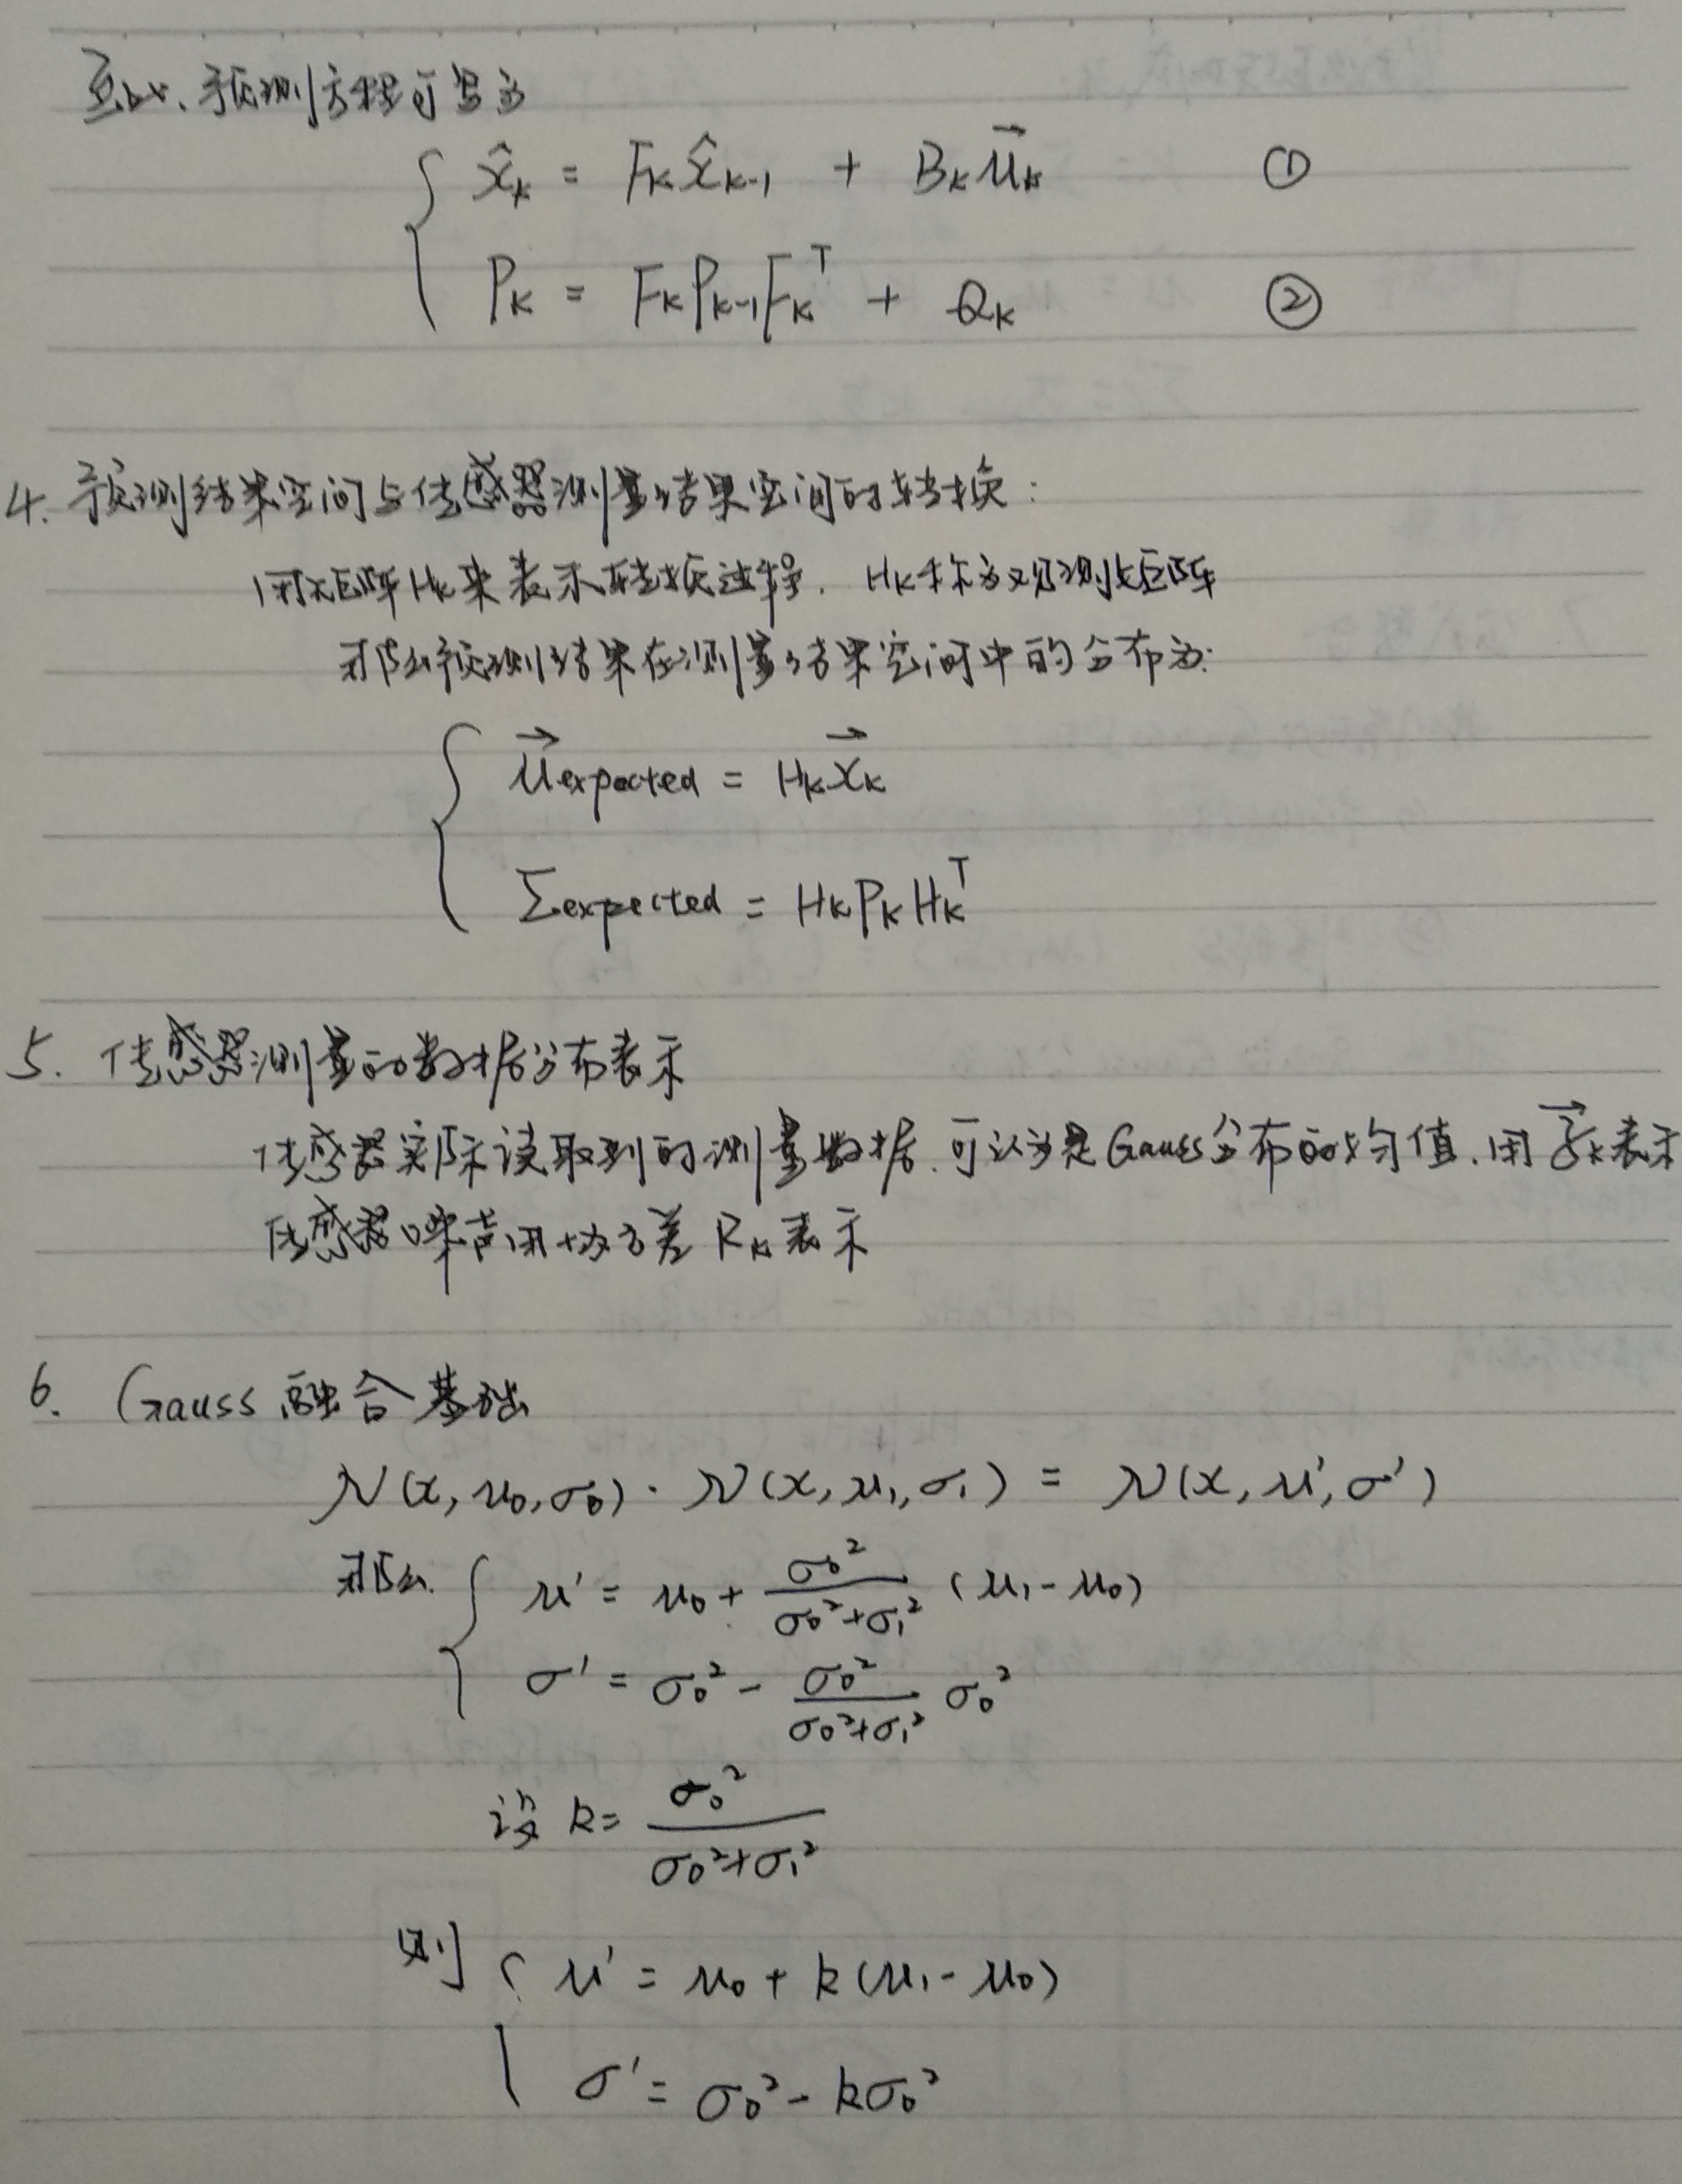 至此、预测方程可写为
x̂k = Fk x̂k-1 + Bk u⃗k ①
Pk = Fk Pk-1 Fk^T + Qk ②
4. 预测结果空间与传感器测量结果空间的转换:
用矩阵Hk来表示转换过程. Hk称为观测矩阵
那么预测结果在测量结果空间中的分布为:
μ⃗expected = Hk x⃗k
Σexpected = Hk Pk Hk^T
5. 传感器测量的数据分布表示
传感器实际读取到的测量数据.可认为是Gauss分布的均值.用z⃗k表示
传感器噪声用协方差Rk表示
6. Gauss融合基础
N(x, μ0, σ0) · N(x, μ1, σ1) = N(x, μ', σ')
那么. μ' = μ0 + σ0²/(σ0²+σ1²) (μ1 - μ0)
σ' = σ0² - σ0²/(σ0²+σ1²) σ0²
设 k = σ0²/(σ0²+σ1²)
则 μ' = μ0 + k(μ1 - μ0)
σ' = σ0² - kσ0²